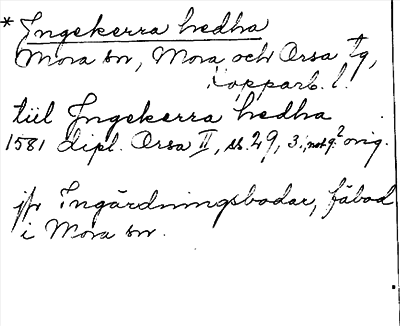 * Ingekerra hedha
Mora sn, Mora och Orsa tg,
Kopparb. l.
tiil Ingekerra hedha
1581 dipl. Orsa II, s. 29, 3. orig.
jfr Ingärdningsbodar, fäbod
i Mora sn.